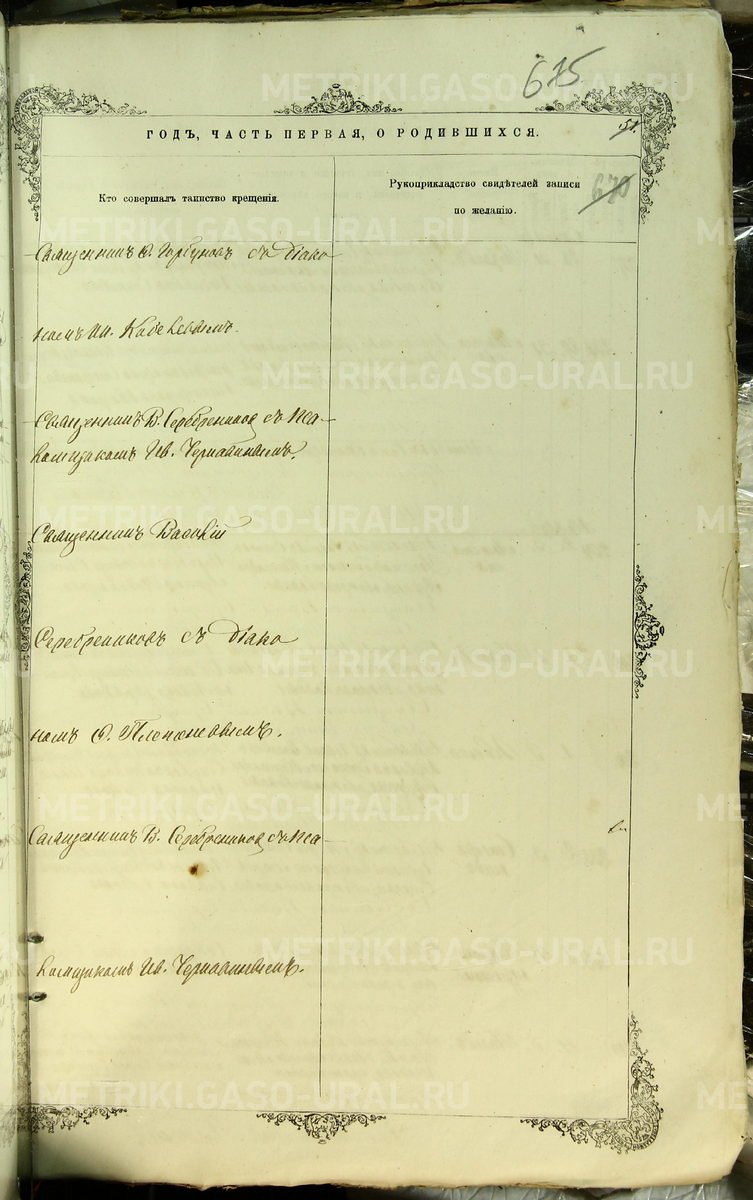 675
ГОДЪ, ЧАСТЬ ПЕРВАЯ, О РОДИВШИХСЯ.
51.
Кто совершалъ таинство крещенія.
Рукоприкладство свидѣтелей записи
по желанію.
670
Священникъ Ѳ. Горбуновъ съ діако
номъ
Священникъ В. Серебрениковъ съ Пса
ломщикомъ Ив. Чернавинымъ.
Священникъ Василій
Серебрениковъ съ діако
номъ Ѳ.
Священникъ В. Серебрениковъ съ Пса
ломщикомъ Ив. Чернавинымъ.
METRIKI.GASO-URAL.RU